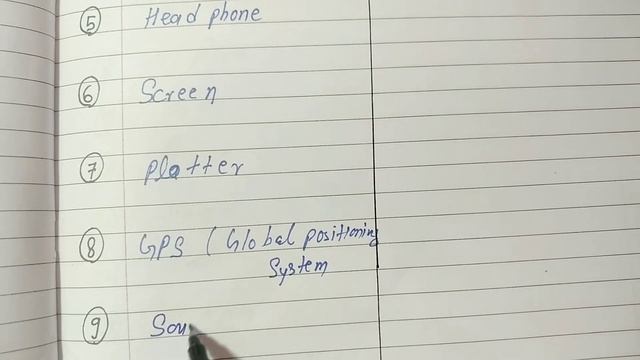 ⑤ Head phone
⑥ Screen
⑦ Platter
⑧ GPS ( Global positioning
System
⑨ Sou